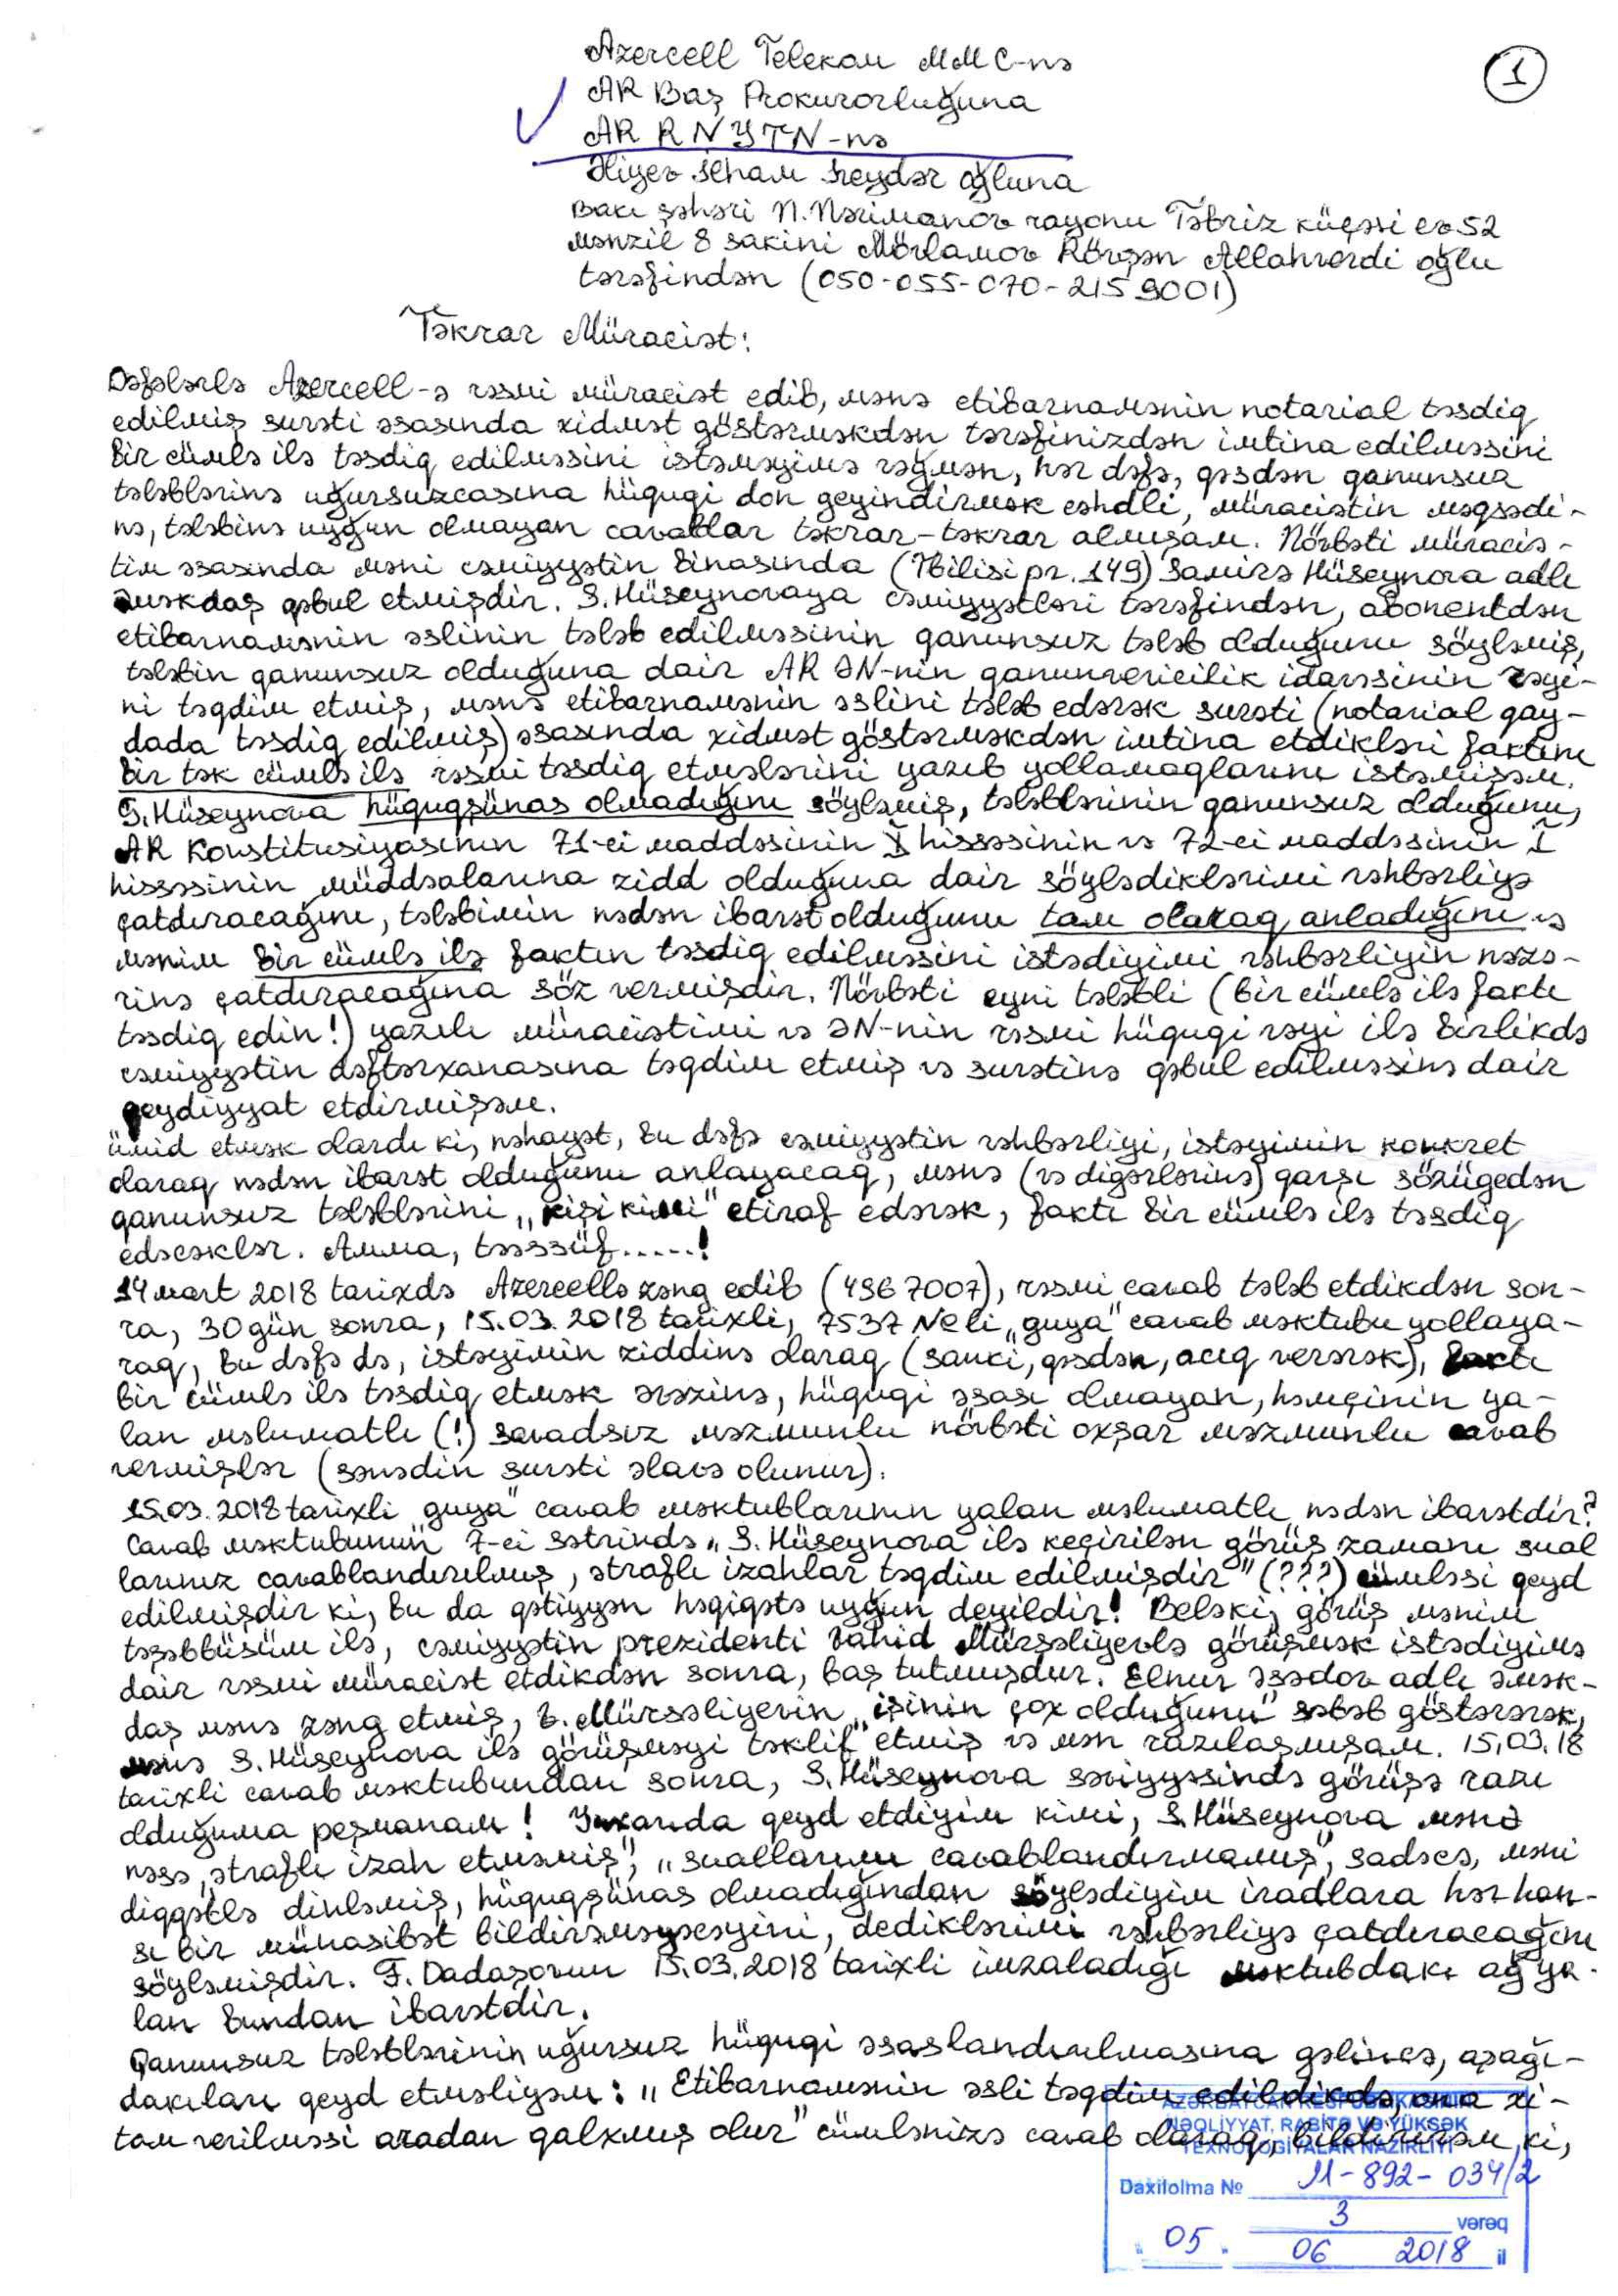 Azercell Telekom MMC-nə
1
AR Baş Prokurorluğuna
AR RNYTN-nə
Əliyev İlham Heydər oğluna
Bakı şəhəri N.Nərimanov rayonu Təbriz küçəsi ev 52
mənzil 8 sakini Mövlamov Rövşən Allahverdi oğlu
tərəfindən (050-055-070-215 9001)
Təkrar Müraciət:
Dəfələrlə Azercell-ə rəsmi müraciət edib, mənə etibarnamənin notarial təsdiq
edilmiş surəti əsasında xidmət göstərməkdən tərəfinizdən imtina edilməsini
bir cümlə ilə təsdiq edilməsini istəməyimə rəğmən, hər dəfə, qəsdən qanunsuz
tələblərinə uğursuzcasına hüquqi don geyindirmək cəhdli, müraciətin məqsədi-
nə, tələbinə uyğun olmayan cavablar təkrar-təkrar almışam. Növbəti müraciə-
tim əsasında məni cəmiyyətin binasında (Tbilisi pr. 149) Samirə Hüseynova adlı
əməkdaş qəbul etmişdir. S.Hüseynovaya cəmiyyətləri tərəfindən, abonentdən
etibarnamənin əslinin tələb edilməsinin qanunsuz tələb olduğunu söyləmiş,
tələbin qanunsuz olduğuna dair AR ƏN-nin qanunvericilik idarəsinin rəyi-
ni təqdim etmiş, mənə etibarnamənin əslini tələb edərək surəti (notarial qay-
dada təsdiq edilmiş) əsasında xidmət göstərməkdən imtina etdikləri faktını
bir tək cümlə ilə rəsmi təsdiq etmələrini yazıb yollamaqlarını istəmişəm.
S.Hüseynova hüquqşünas olmadığını söyləmiş, tələblərinin qanunsuz olduğunu,
AR Konstitusiyasının 71-ci maddəsinin I hissəsinin və 72-ci maddəsinin I
hissəsinin müddəalarına zidd olduğuna dair söylədiklərimi rəhbərliyə
çatdıracağını, tələbimin nədən ibarət olduğunu tam olaraq anladığını və
mənim bir cümlə ilə faktın təsdiq edilməsini istədiyimi rəhbərliyin nəzə-
rinə çatdıracağına söz vermişdir. Növbəti eyni tələbli (bir cümlə ilə faktı
təsdiq edin!) yazılı müraciətimi və ƏN-nin rəsmi hüquqi rəyi ilə birlikdə
cəmiyyətin dəftərxanasına təqdim etmiş və surətinə qəbul edilməsinə dair
qeydiyyat etdirmişəm.
ümid etmək olardı ki, nəhayət, bu dəfə cəmiyyətin rəhbərliyi, istəyimin konkret
olaraq nədən ibarət olduğunu anlayacaq, mənə (və digərlərinə) qarşı sözügedən
qanunsuz tələblərini „kişi kimi" etiraf edərək, faktı bir cümlə ilə təsdiq
edəcəklər. Amma, təəssüf.....!
14 mart 2018 tarixdə Azercellə zəng edib (496 7007), rəsmi cavab tələb etdikdən son-
ra, 30 gün sonra, 15.03.2018 tarixli, 7537 №li „guya" cavab məktubu yollaya-
raq, bu dəfə də, istəyimin ziddinə olaraq (sanki, qəsdən, acıq verərək), faktı
bir cümlə ilə təsdiq etmək əvəzinə, hüquqi əsası olmayan, həmçinin ya-
lan məlumatlı (!) savadsız məzmunlu növbəti oxşar məzmunlu cavab
vermişlər (sənədin surəti əlavə olunur).
15.03.2018 tarixli „guya" cavab məktublarının yalan məlumatlı nədən ibarətdir?
Cavab məktubunun 7-ci sətrində „S.Hüseynova ilə keçirilən görüş zamanı sual
larınız cavablandırılmış, ətraflı izahlar təqdim edilmişdir" (???) cümləsi qeyd
edilmişdir ki, bu da qətiyyən həqiqətə uyğun deyildir! Belə ki, görüş mənim
təşəbbüsüm ilə, cəmiyyətin prezidenti Vahid Mürsəliyevlə görüşmək istədiyimə
dair rəsmi müraciət etdikdən sonra, baş tutmuşdur. Elnur Əsədov adlı əmək-
daş mənə zəng etmiş, V.Mürsəliyevin „işinin çox olduğunu" səbəb göstərərək,
mənə S.Hüseynova ilə görüşməyi təklif etmiş və mən razılaşmışam. 15.03.18
tarixli cavab məktubundan sonra, S.Hüseynova səviyyəsində görüşə razı
olduğuma peşmanam! Yuxarıda qeyd etdiyim kimi, S.Hüseynova mənə
nəsə „ətraflı izah etməmiş", „suallarımı cavablandırmamış", sadəcə, məni
diqqətlə dinləmiş, hüquqşünas olmadığından söylədiyim iradlara hər han-
sı bir münasibət bildirəməyəcəyini, dediklərimi rəhbərliyə çatdıracağını
söyləmişdir. F.Dadaşovun 15.03.2018 tarixli imzaladığı məktubdakı ağ ya-
lan bundan ibarətdir.
Qanunsuz tələblərinin uğursuz hüquqi əsaslandırılmasına gəlincə, aşağı-
dakıları qeyd etməliyəm: „Etibarnamənin əsli təqdim edildikdə, ona xi-
tam verilməsi aradan qalxmış olur" cümlənizə cavab olaraq, bildirirəm ki,
AZƏRBAYCAN RESPUBLİKASININ
NƏQLİYYAT, RABİTƏ VƏ YÜKSƏK
TEXNOLOGİYALAR NAZİRLİYİ
Daxilolma № 11-892-034/2
3 vərəq
"05" 06 2018 il